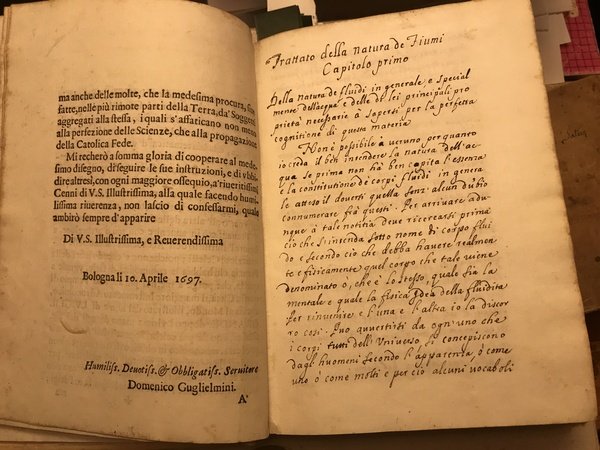 ma anche delle molte, che la medesima procura, sian
fatte, nelle più rimote parti della Terra, da' Soggetti
aggregati alla stessa, i quali s'affaticano non meno
alla perfezione delle Scienze, che alla propagazione
della Catolica Fede.
Mi recherò a somma gloria di cooperare al mede-
simo disegno, di seguire le sue instruzioni, e di ubbi-
dire altresì, con ogni maggiore ossequio, a' riueritissimi
Cenni di V.S. Illustrissima, alla quale facendo humi-
lissima riuerenza, non lascio di confessarmi, quale
ambirò sempre d'apparire
Di V.S. Illustrissima, e Reuerendissima
Bologna li 10. Aprile 1697.
Humiliss. Deuotiss. & Obbligatiss. Seruitore
Domenico Guglielmini.
A
Trattato della natura de Fiumi
Capitolo primo
Della natura de fluidi in generale e special
mente dell'acque e delle di lei principali pro
prietà necessarie à sapersi per la perfetta
cognitione di questa materia
Non è possibile à ueruno per quanto
io creda il ben intendere la natura dell'ac
qua se prima non hà ben capita l'essenza
e la constitutione de corpi fluidi in genera
le atteso il douersi quella senz' alcun dubio
connumerare frà questi. Per arriuare adu-
nque à tale notitia deue ricercarsi prima
ciò che s'intenda sotto nome di corpo flui
do e secondo ciò che debba hauere realmen
te e fisicamente quel corpo che tale uiene
denominato ò, che è lo stesso, quale sia la
mentale e quale la fisica idea della fluidità
Per rinuenire e l'una e l'altra io la discor
ro così. Può auuertirsi da ogn uno che
i corpi tutti dell' Vniuerso, si concepiscono
dagli huomeni secondo l'apparenza, ò come
uno ò come molti e per ciò alcuni vocaboli